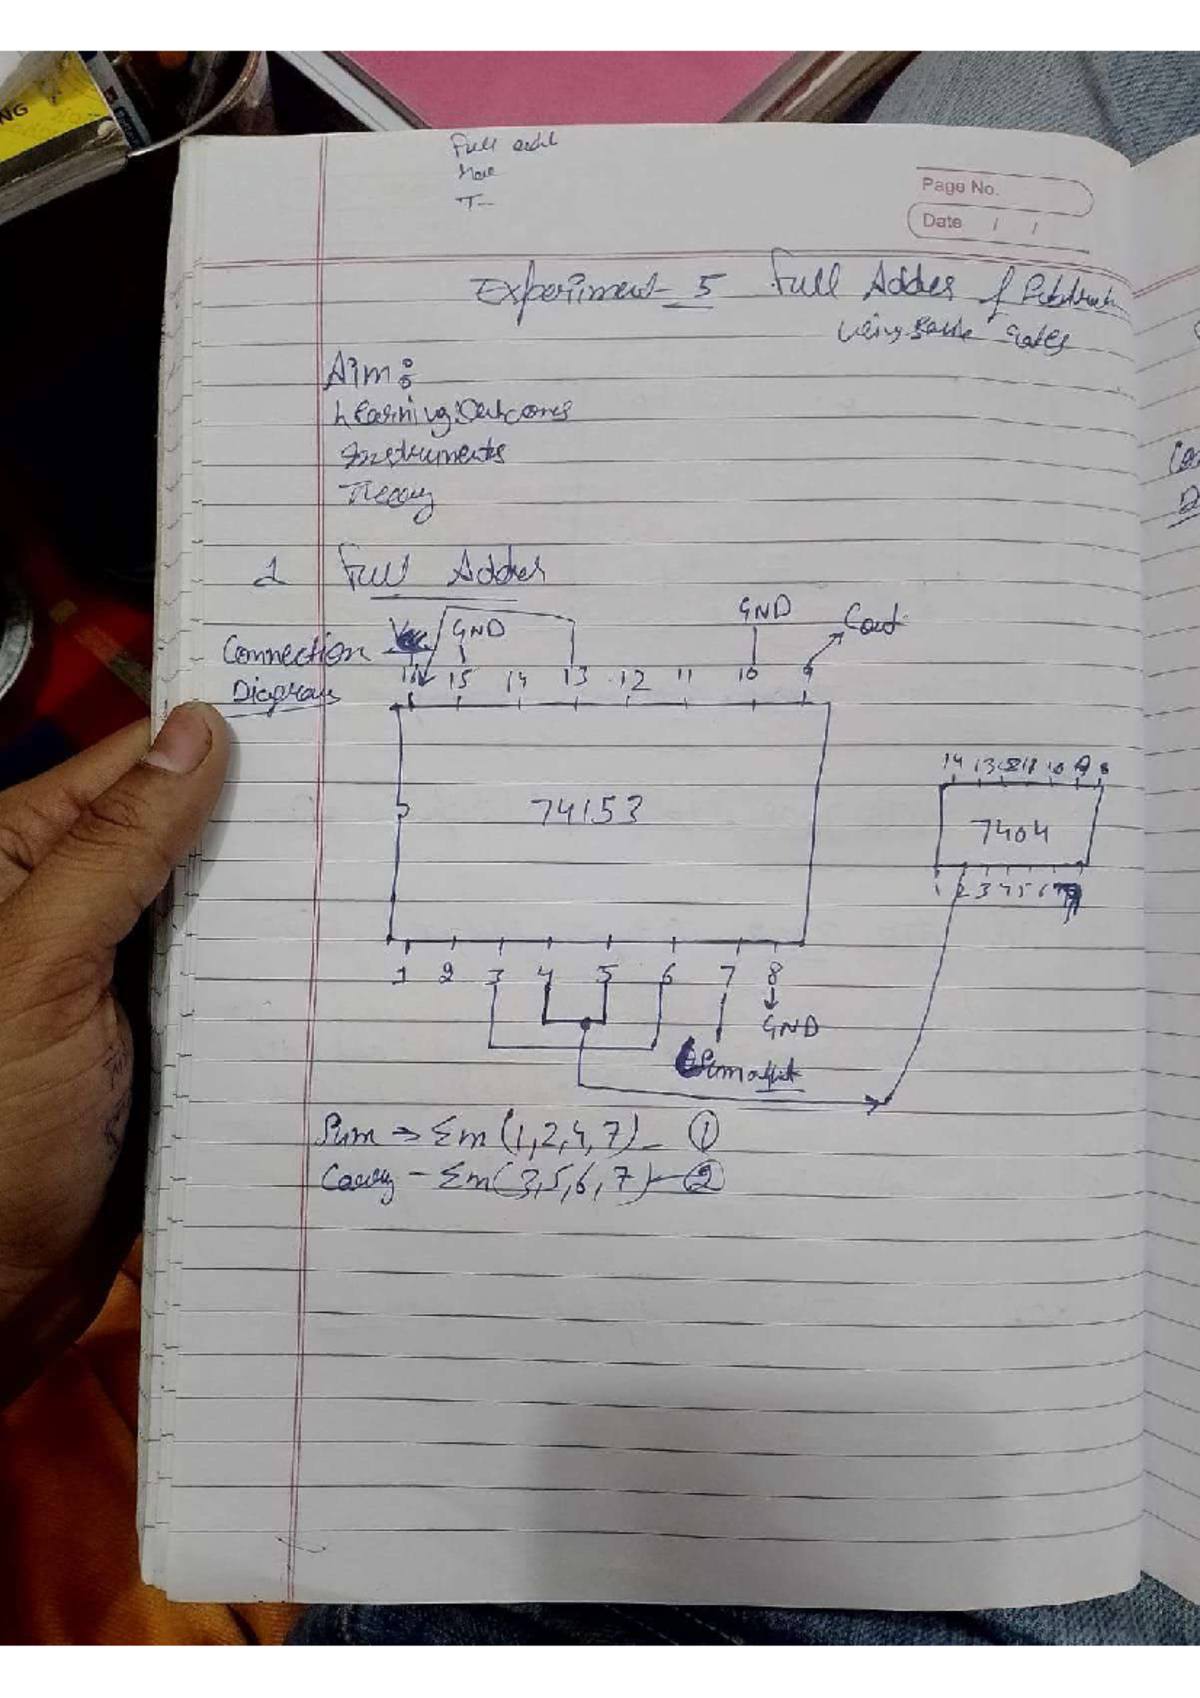 NG
Full add
Page No.
Date / /
Experiment-5 Full Adder &
using Gates
Aim:
Learning Outcomes
Instruments
Theory
1 Full Adder
GND Cout
Vcc GND
Connection
Diagram
16 15 14 13 12 11 10 9
14 13 12 11 10 9 8
74153
7404
1 2 3 4 5 6 7
1 2 3 4 5 6 7 8
GND
Sum output
Sum → Σm (1,2,4,7) - ①
Carry - Σm(3,5,6,7) - ②